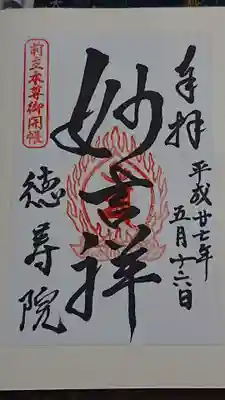 奉拝
平成廿七年
五月十六日
妙吉祥
前立本尊御開帳
徳寿院